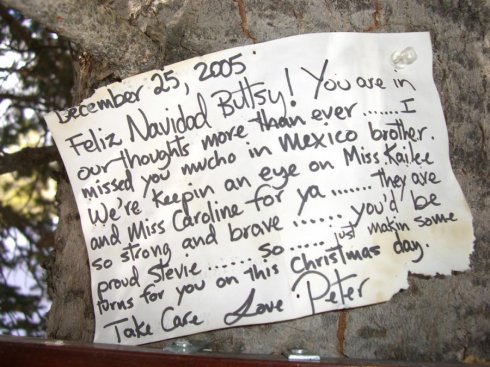 December 25, 2005.
Feliz Navidad Buttsy! You are in
our thoughts more than ever ...... I
missed you mucho in Mexico brother.
We're keepin an eye on Miss Kailee
and Miss Caroline for ya ....... they are
so strong and brave ...... you'd be
proud Stevie ....... so ..... just makin some
turns for you on this Christmas day.
Take Care Love Peter